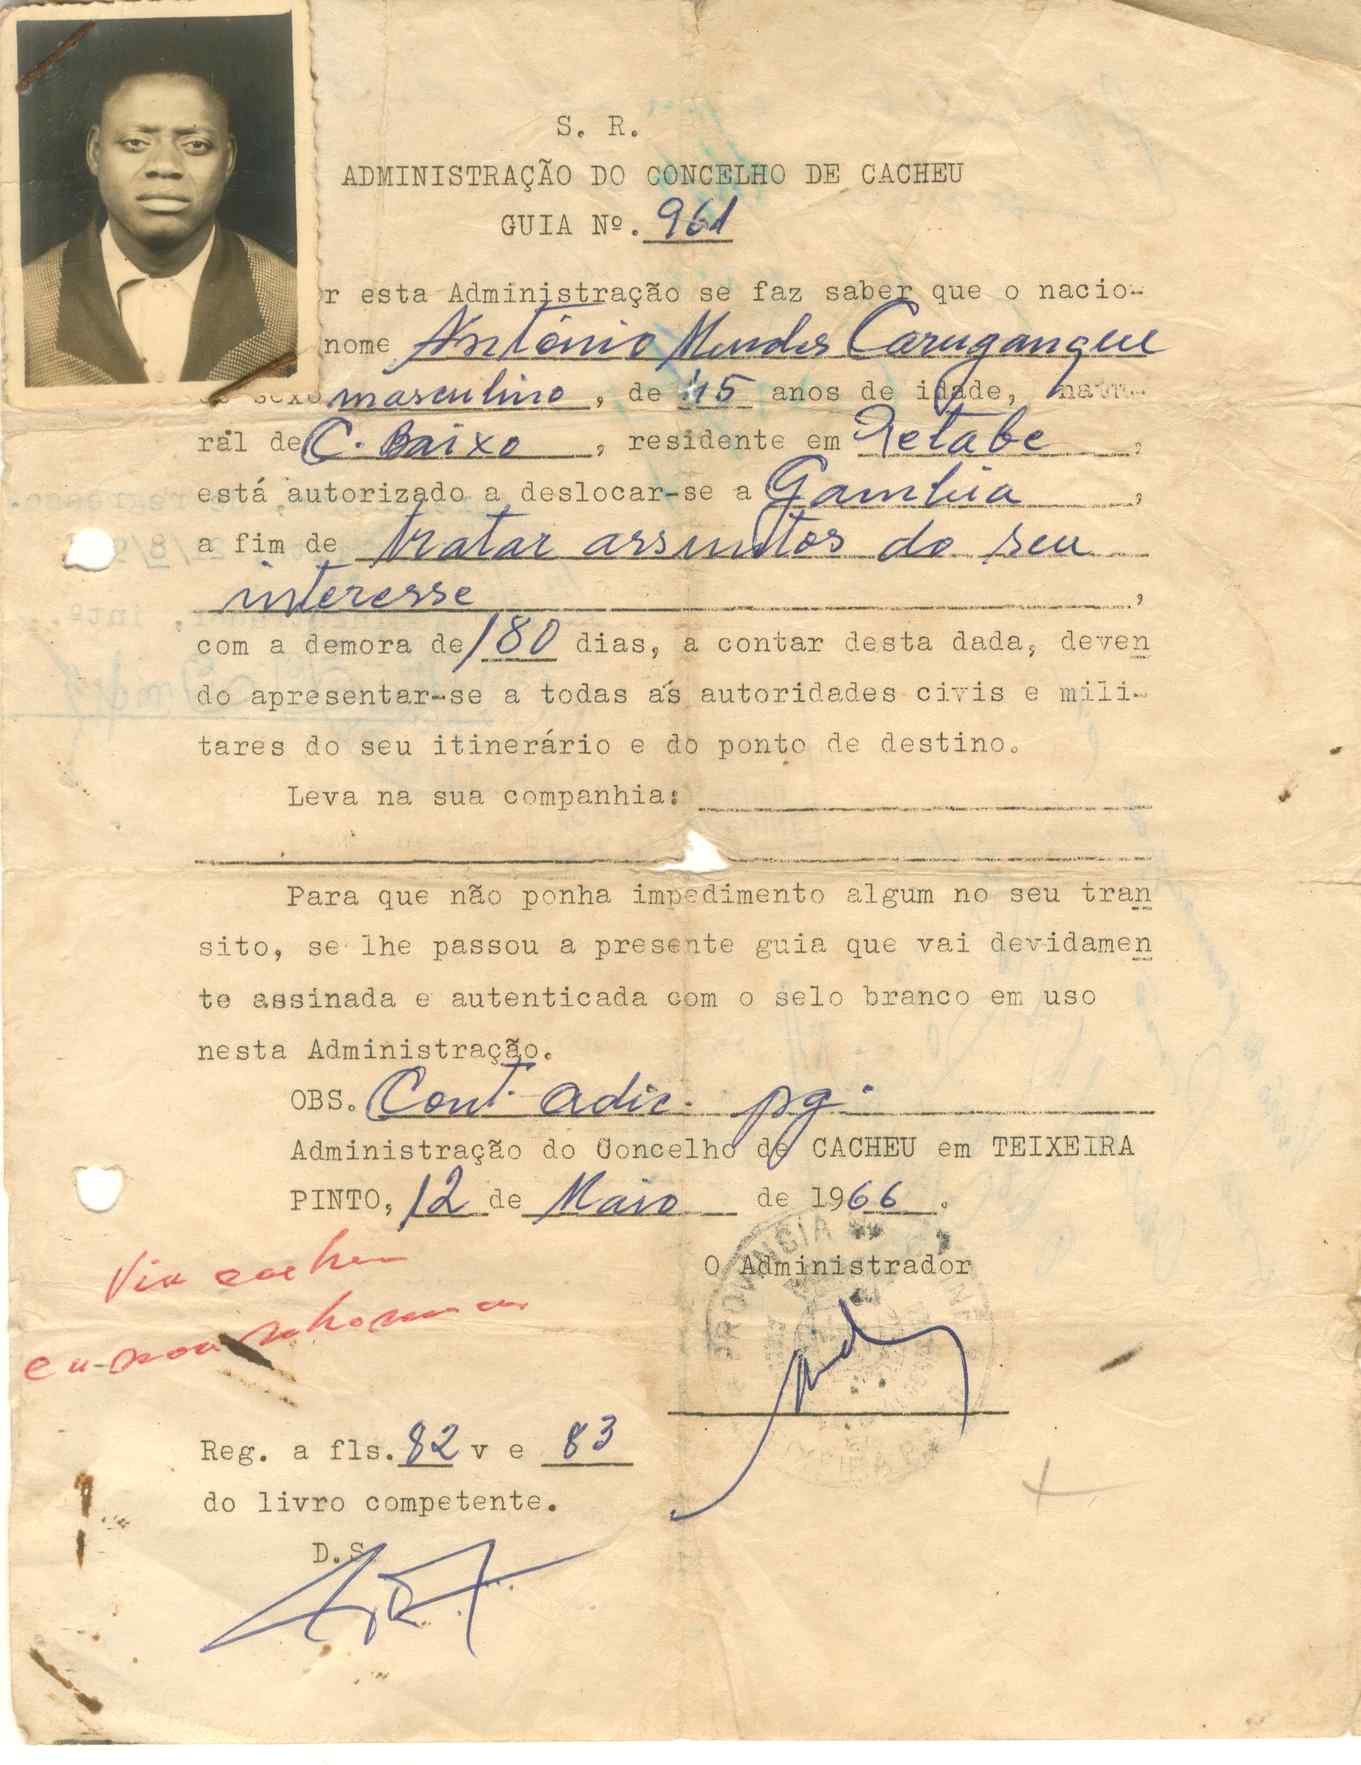 S. R.
ADMINISTRAÇÃO DO CONCELHO DE CACHEU
GUIA Nº. 961
r esta Administração se faz saber que o nacio-
nome António Mendes Carugangue
sexo masculino, de 45 anos de idade, natu-
ral de C. Baixo, residente em Petabe,
está autorizado a deslocar-se a Gambia,
a fim de tratar assuntos do seu
interesse,
com a demora de 180 dias, a contar desta dada, deven
do apresentar-se a todas as autoridades civis e mili-
tares do seu itinerário e do ponto de destino.
Leva na sua companhia:
Para que não ponha impedimento algum no seu tran
sito, se lhe passou a presente guia que vai devidamen
te assinada e autenticada com o selo branco em uso
nesta Administração.
OBS. Cont. adic. pg.
Administração do Concelho de CACHEU em TEIXEIRA
PINTO, 12 de Maio de 1966.
Via cacheu
O Administrador
PROVINCIA
Reg. a fls. 82 v e 83
do livro competente.
D.S.